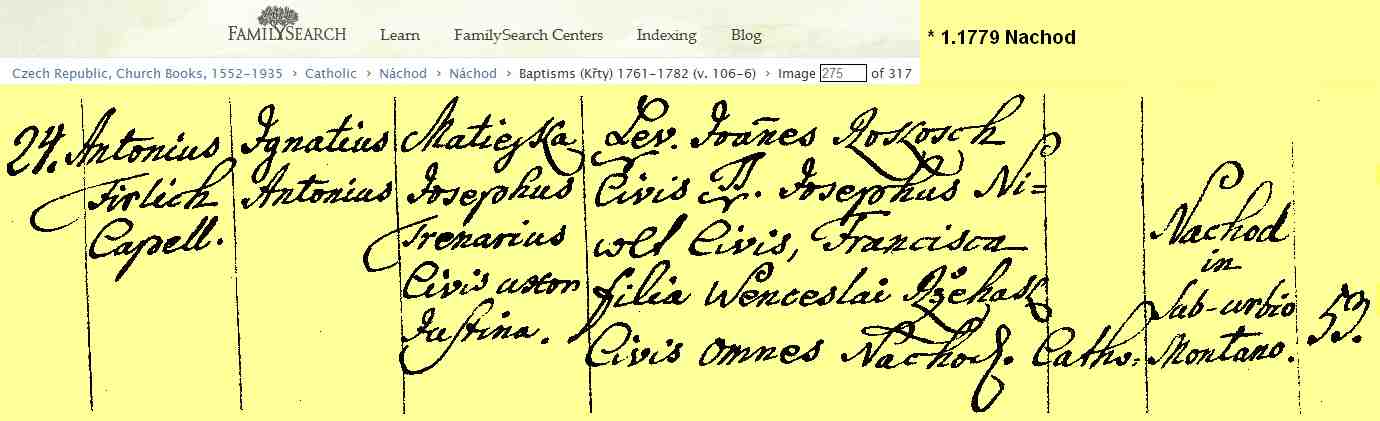 FAMILYSEARCH Learn FamilySearch Centers Indexing Blog
* 1.1779 Nachod
Czech Republic, Church Books, 1552-1935 › Catholic › Náchod › Náchod › Baptisms (Křty) 1761-1782 (v. 106-6) › Image 275 of 317
24. Antonius
Firlich
Capell.
Ignatius
Antonius
Matieyka
Josephus
Frenarius
Civis uxor
Justina.
Lev. Joañes Rokosch
Civis TT. Josephus Ni=
welt Civis, Francisca
filia Wenceslai Ržehak
Civis omnes Nachod.
Catho:
Nachod
in
Sub-urbio
Montano.
53.